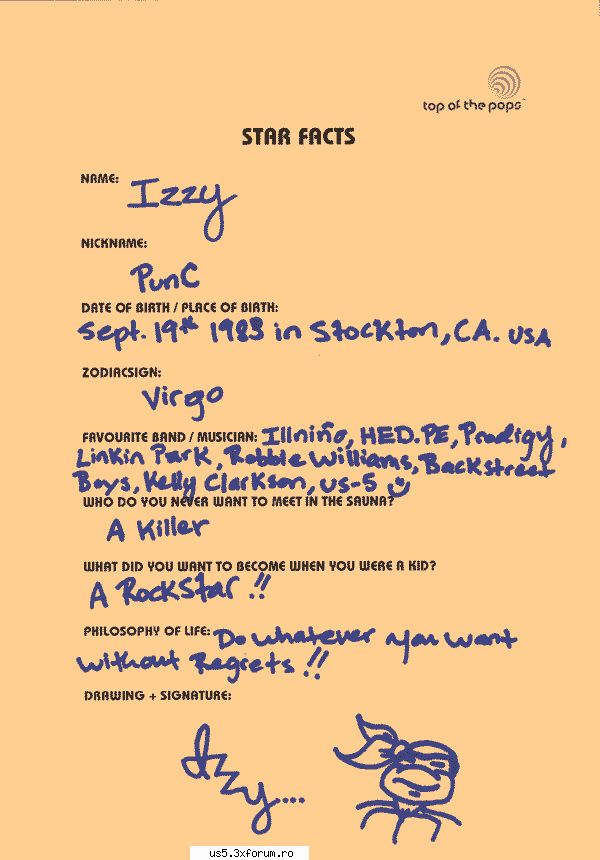 top of the pops™
STAR FACTS
NAME: Izzy
NICKNAME:
PunC
DATE OF BIRTH / PLACE OF BIRTH:
Sept. 19th 1983 in Stockton, CA. USA
ZODIACSIGN:
Virgo
FAVOURITE BAND / MUSICIAN: Illniño, HED.PE, Prodigy,
Linkin Park, Robbie Williams, Backstreet
Boys, Kelly Clarkson, US-5
WHO DO YOU NEVER WANT TO MEET IN THE SAUNA?
A Killer
WHAT DID YOU WANT TO BECOME WHEN YOU WERE A KID?
A RockStar !!
PHILOSOPHY OF LIFE: Do whatever you want
without Regrets !!
DRAWING + SIGNATURE:
Izzy....
us5.3xforum.ro